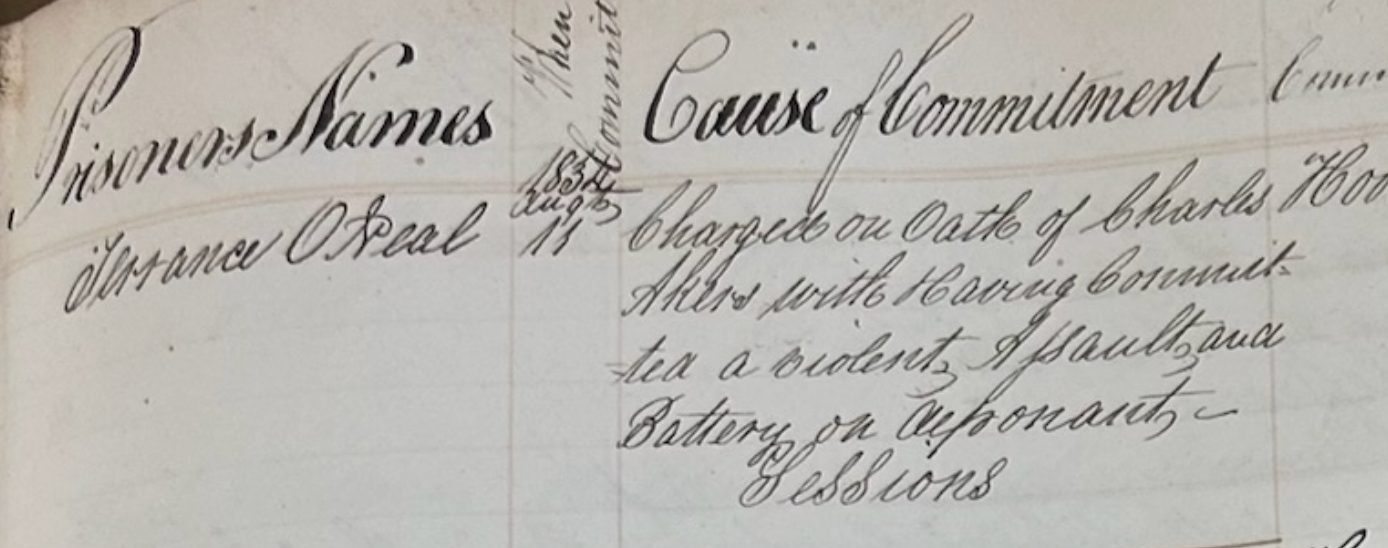 Prisoners Names When Commit Cause of Commitment
1834
Augt
Terrance ONeal 11 Charged on Oath of Charles
Akers with Having Commit-
-ted a violent Assault and
Battery on deponant -
Sessions